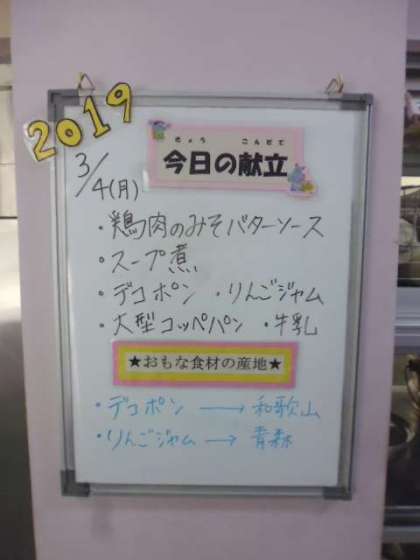 2019
きょう こんだて
今日の献立
3/4(月)
・鶏肉のみそバターソース
・スープ煮
・デコポン ・りんごジャム
・大型コッペパン ・牛乳
★おもな食材の産地★
・デコポン → 和歌山
・りんごジャム → 青森